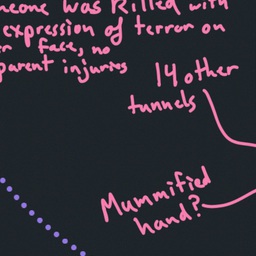 was killed with
expression of terror on
face, no
parent injuries
14 other
tunnels
Mummified
hand?